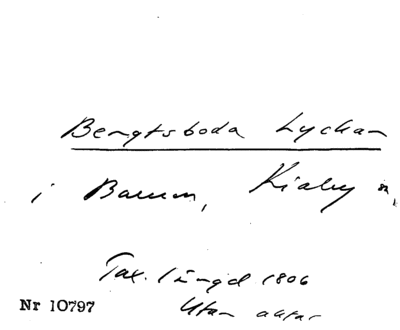 Bengtsboda Lyckan
i Barum, Kiaby sn,
Tax. längd 1806
Nr 10797
Utan